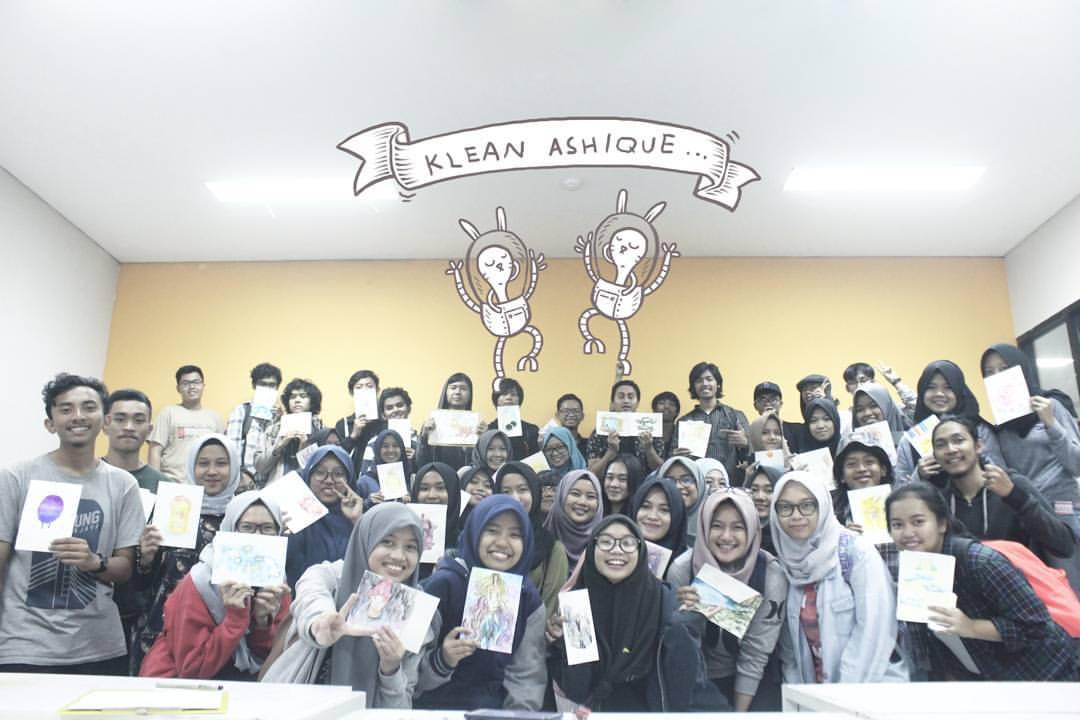 KLEAN ASHIQUE...
UNG